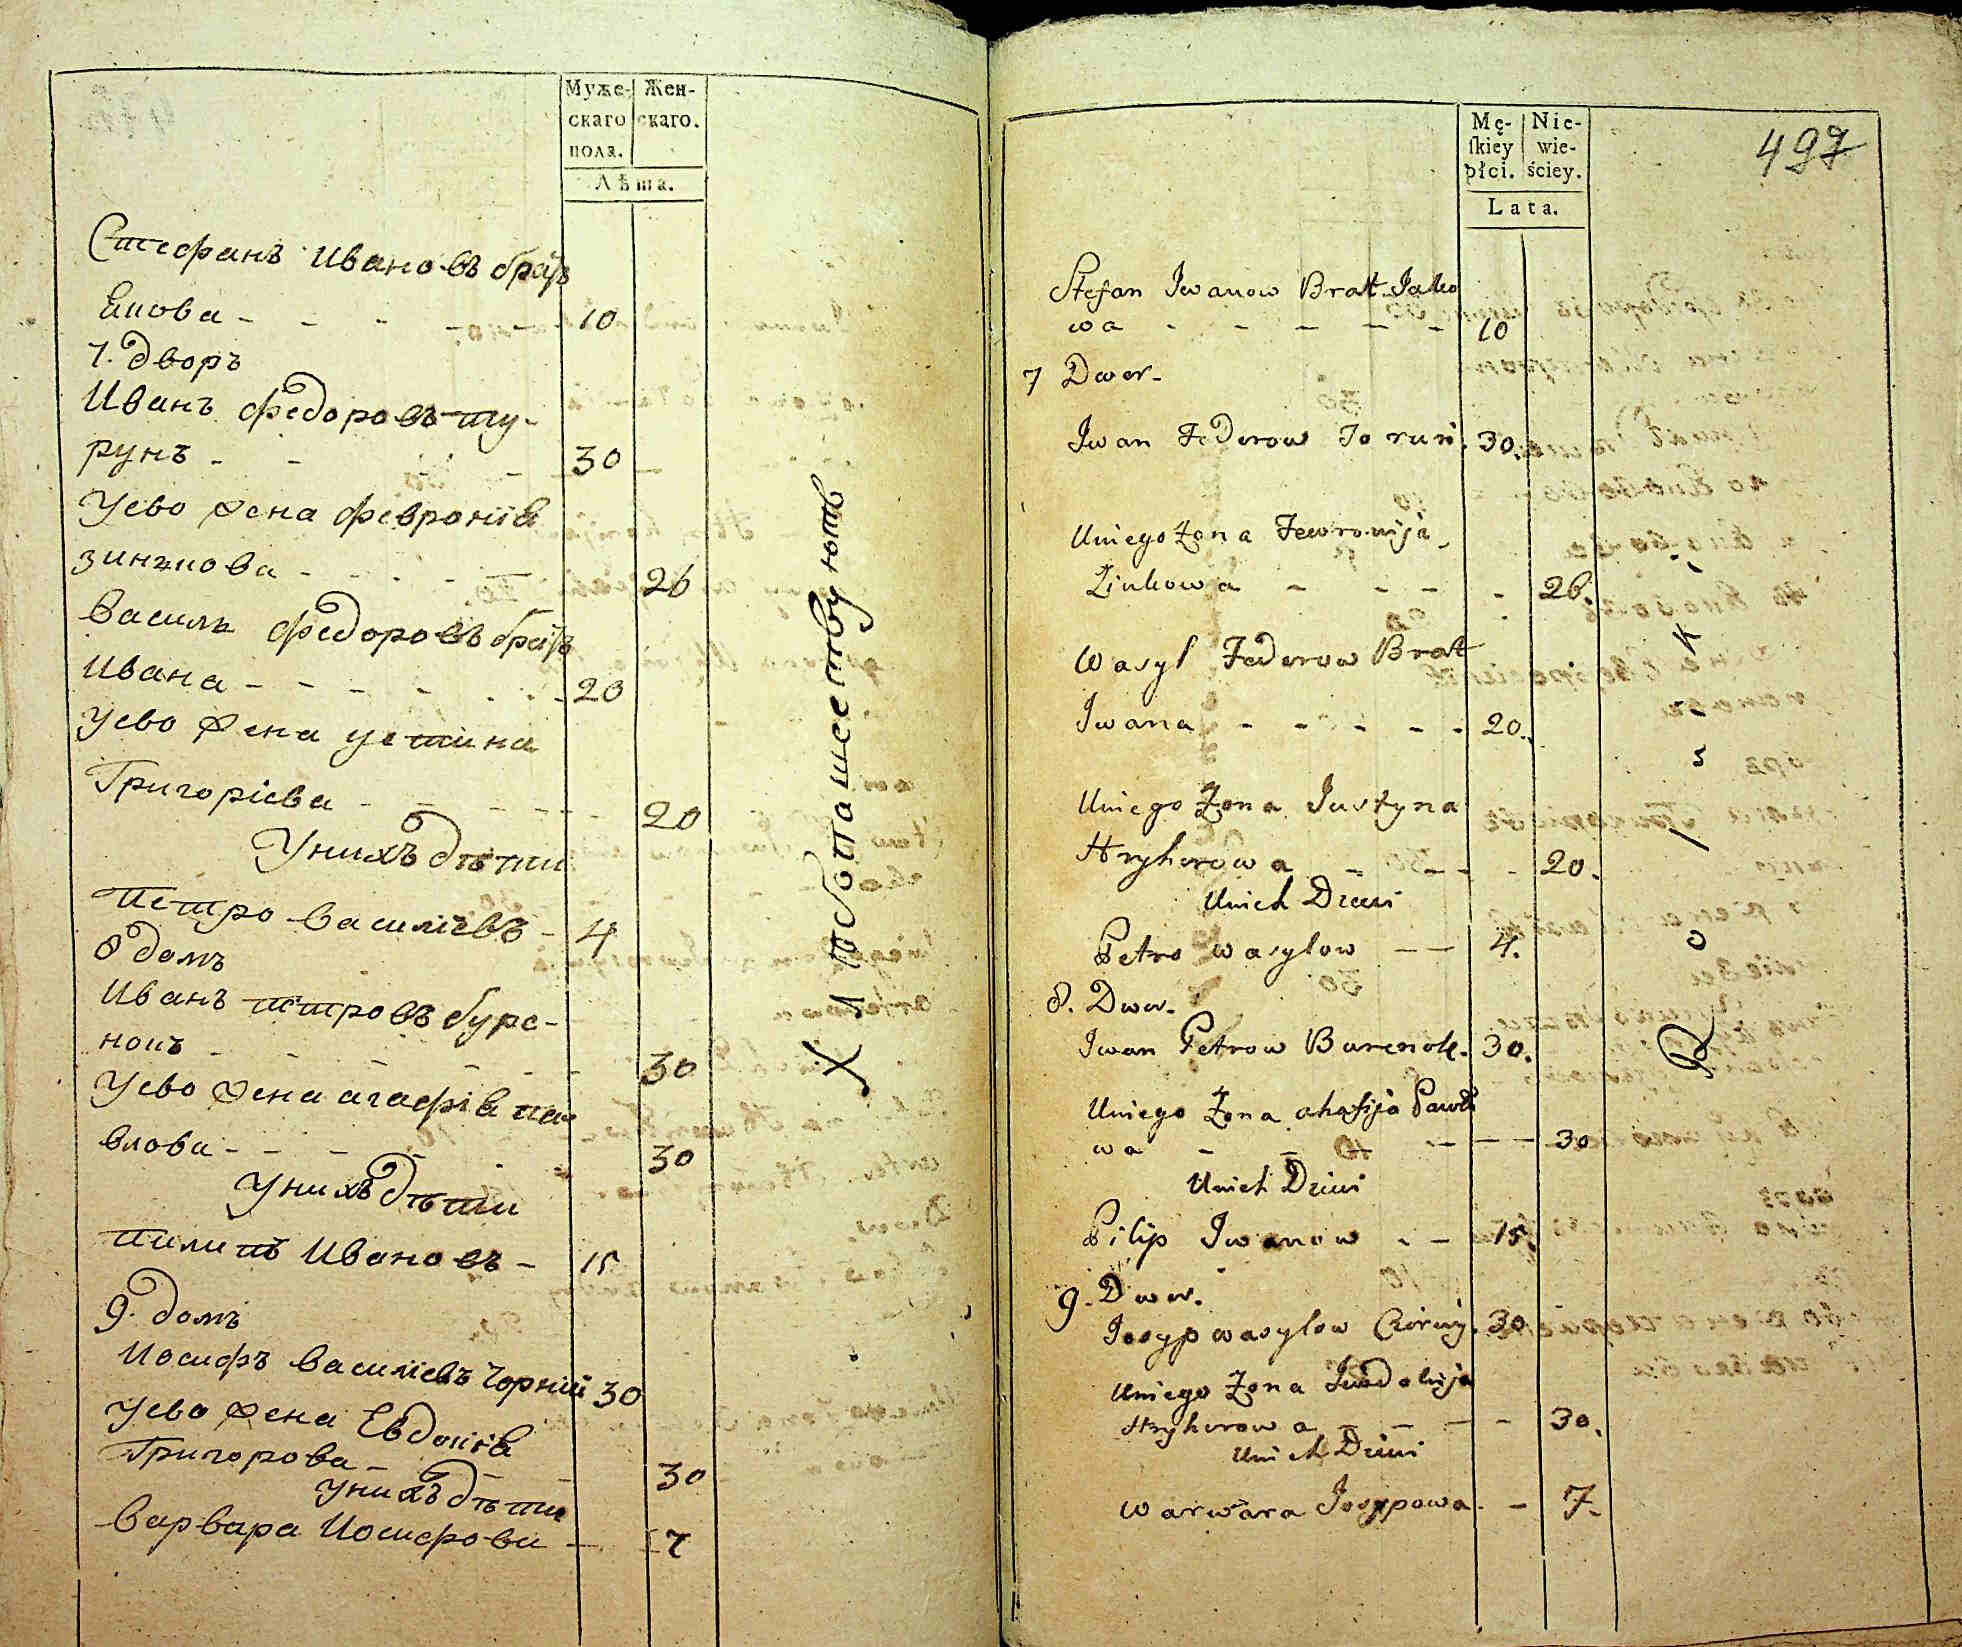 Муже-
скаго
пола.
Жен-
скаго.
Лѣта.
Стефанъ Ивановъ братъ
Якова - - - - - 10
7. дворъ
Иванъ Федоровъ ту-
рунъ - - - 30
Уево жена Феврониѣ
зинкова - - - - 26
Василь Федоровъ братъ
Ивана - - - - - 20
Уево жена устина
Григоріева - - - - 20
Унихъ дѣти
Петро Василіевъ - 4
8 домъ
Иванъ петровъ буре-
нокъ - - - - 30
Уево жена агафіѣ па
влова - - - - 30
Унихъ дѣти
пилипъ Ивановъ - 15
9. домъ
Иосифъ Василіевъ Чорній 30
Уево жена Евдокіѣ
Григорова - - - 30
Унихъ дѣти
Варвара Иосифова - - 7
497
Mę-
ſkiey
płci.
Nie-
wie-
ściey.
Lata.
Stefan Iwanow Brat Jako
wa - - - - - 10
7 Dwor.
Iwan Fedorow Torun. 30.
Uniego Żona Fewronija
Zinkowa - - - - 26.
Wasyl Fedorow Brat
Iwana - - - - - 20.
Uniego Żona Justyna
Hryhorowa - - - - 20.
Unich Dzieci
Petro Wasylow - - 4.
8. Dwor.
Iwan Petrow Burenok. 30.
Uniego Żona ahafija Pawło
wa - - - - - 30
Unich Dzieci
Pilip Iwanow - - 15.
9. Dwor.
Josyp Wasylow Czorny. 30.
Uniego Żona Iwdokija
Hryhorowa - - - 30.
Unich Dzieci
Warwara Josypowa - - 7.